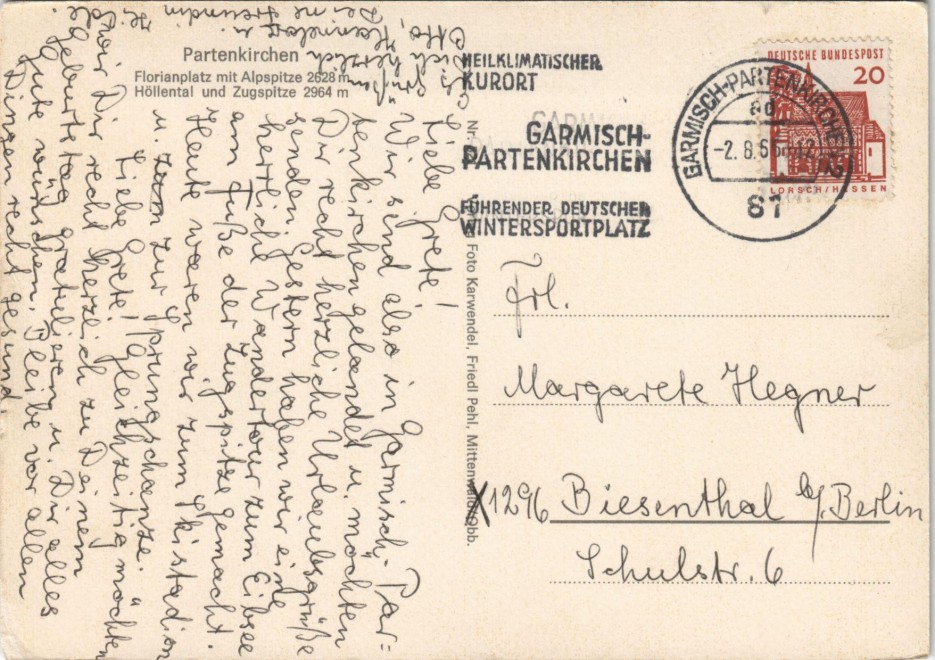 Partenkirchen
Florianplatz mit Alpspitze 2628 m
Höllental und Zugspitze 2964 m
HEILKLIMATISCHER
KURORT
GARMISCH-
PARTENKIRCHEN
FÜHRENDER DEUTSCHER
WINTERSPORTPLATZ
GARMISCH-PARTENKIRCHEN
-2.8.66
81
DEUTSCHE BUNDESPOST
20
LORSCH/HESSEN
Liebe Grete!
Wir sind also in Garmisch-Par=
tenkirchen gelandet u. möchten
Dir recht herzliche Urlaubsgrüße
senden. Gestern haben wir eine
herrliche Wandertour zum Eibsee
am Fuße der Zugspitze gemacht.
Heute waren wir zum Skistadion
u. zur Sprungschanze.
Liebe Grete! Gleichzeitig möchten
wir Dir recht herzlich zu Deinem
Geburtstag gratulieren u. Dir alles
Gute wünschen. Bleibe vor allen
Dingen recht gesund
Es grüßen
Dich herzlich
Otto, Hannelore u.
Deine Freundin
Nr.
Foto Karwendel, Friedl Pehl, Mittenwald/Obb.
Frl.
Margarete Hegner
X1296 Biesenthal b/Berlin
Schulstr. 6